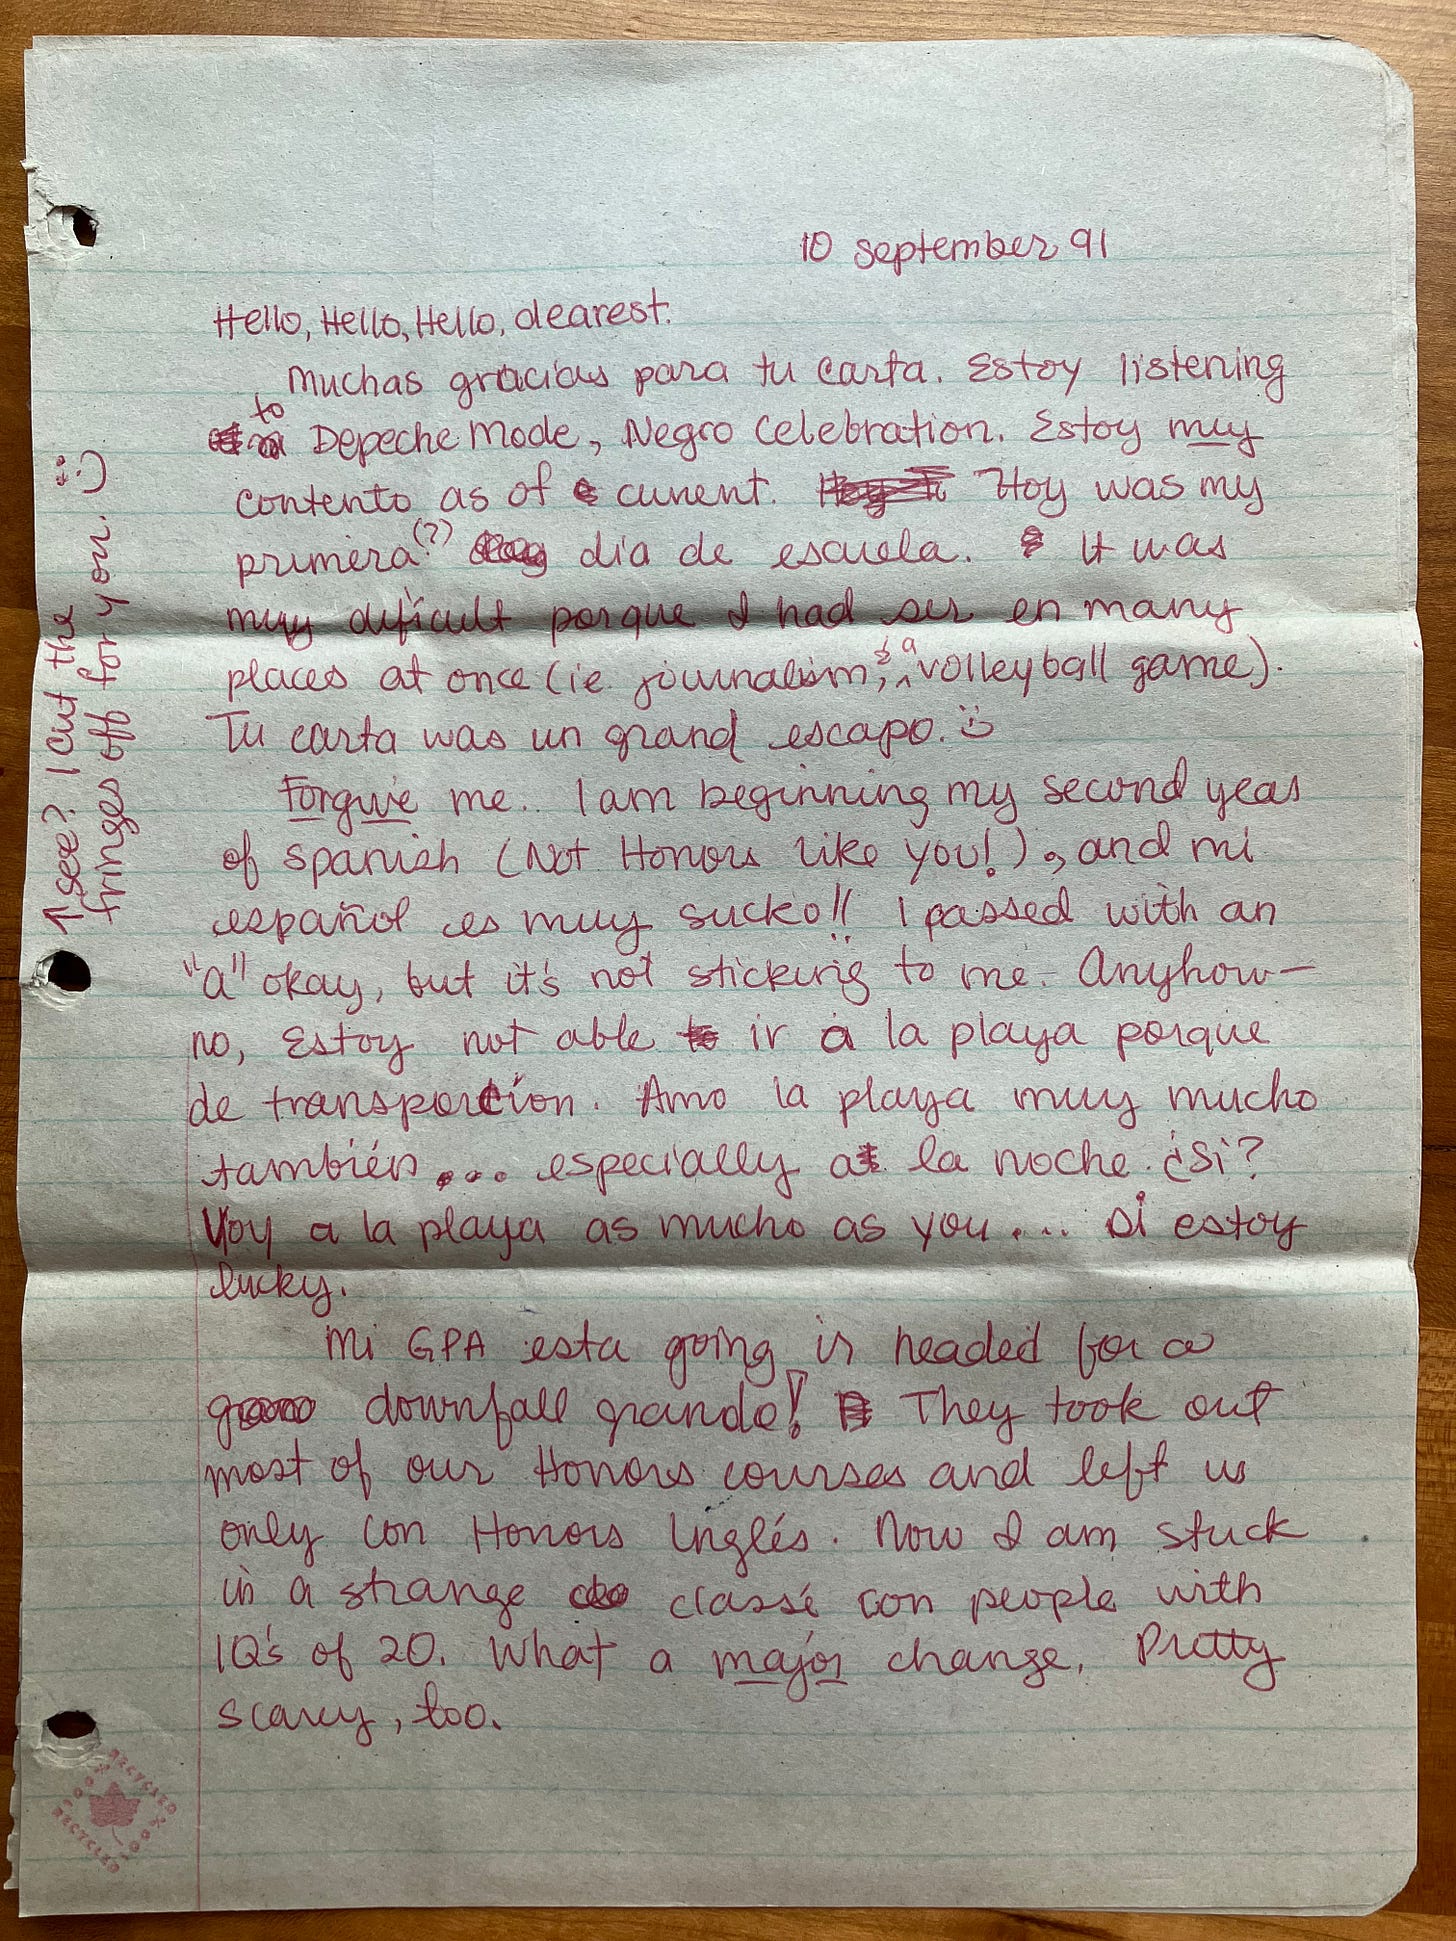 10 september 91
Hello, Hello, Hello, dearest.
Muchas gracias para tu carta. Estoy listening
to Depeche Mode, Negro Celebration. Estoy muy
contento as of current. Hoy was my
primera (?) dia de escuela. It was
muy dificult porque I had ser en many
places at once (ie. journalism, & a volleyball game).
Tu carta was un grand escapo.
Forgive me.. I am beginning my second year
of spanish (Not Honors like you!), and mi
español es muy sucko!! I passed with an
"a" okay, but it's not sticking to me. Anyhow—
no, Estoy not able ir a la playa porque
de transportíon. Amo la playa muy mucho
también.... especially a la noche. ¿Si?
Voy a la playa as mucho as you.... si estoy
lucky.
Mi GPA esta going is headed for a
downfall grande! They took out
most of our Honors courses and left us
only con Honors Inglés. Now I am stuck
in a strange classé con people with
IQ's of 20. What a major change. Pretty
scary, too.
↑ see? I cut the
fringes off for you. :)
100% RECYCLED
100% RECYCLED